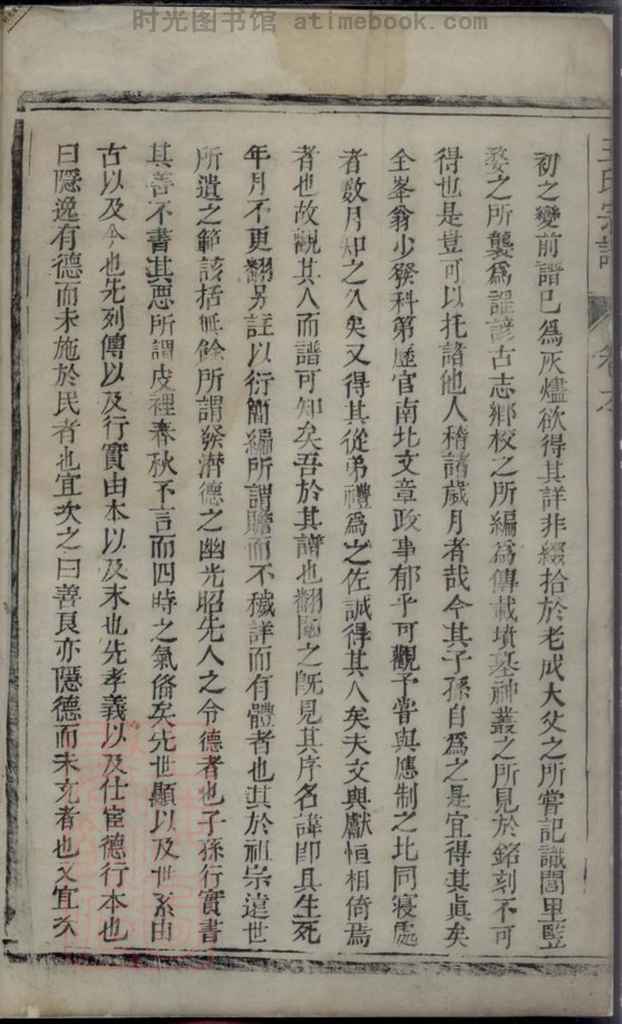 时光图书馆 atimebook.com
王氏宗譜 卷之
初之變前譜已為灰燼欲得其詳非綴拾於老成大父之所嘗記識閭里豎
婺之所襲為謠諺古志鄉校之所編為傳載墳墓神叢之所見於銘刻不可
得也是豈可以托諸他人稽諸歲月者哉今其子孫自為之是宜得其真矣
全峯翁少發科第歷官南北文章政事郁乎可觀予嘗與應制之北同寢處
者數月知之久矣又得其從弟禮為之佐誠得其人矣夫文與獻恒相倚焉
者也故觀其人而譜可知矣吾於其譜也翻閱之既見其序名諱即具生死
年月不更翻另註以衍簡編所謂贍而不穢詳而有體者也其於祖宗遠世
所遺之範該括無餘所謂發潛德之幽光昭先人之令德者也子孫行實書
其善不書其惡所謂皮裡春秋不言而四時之氣俻矣先世顯以及世系由
古以及今也先列傳以及行實由本以及末也先孝義以及仕宦德行本也
曰隱逸有德而未施於民者也宜次之曰善良亦隱德而未充者也又宜次